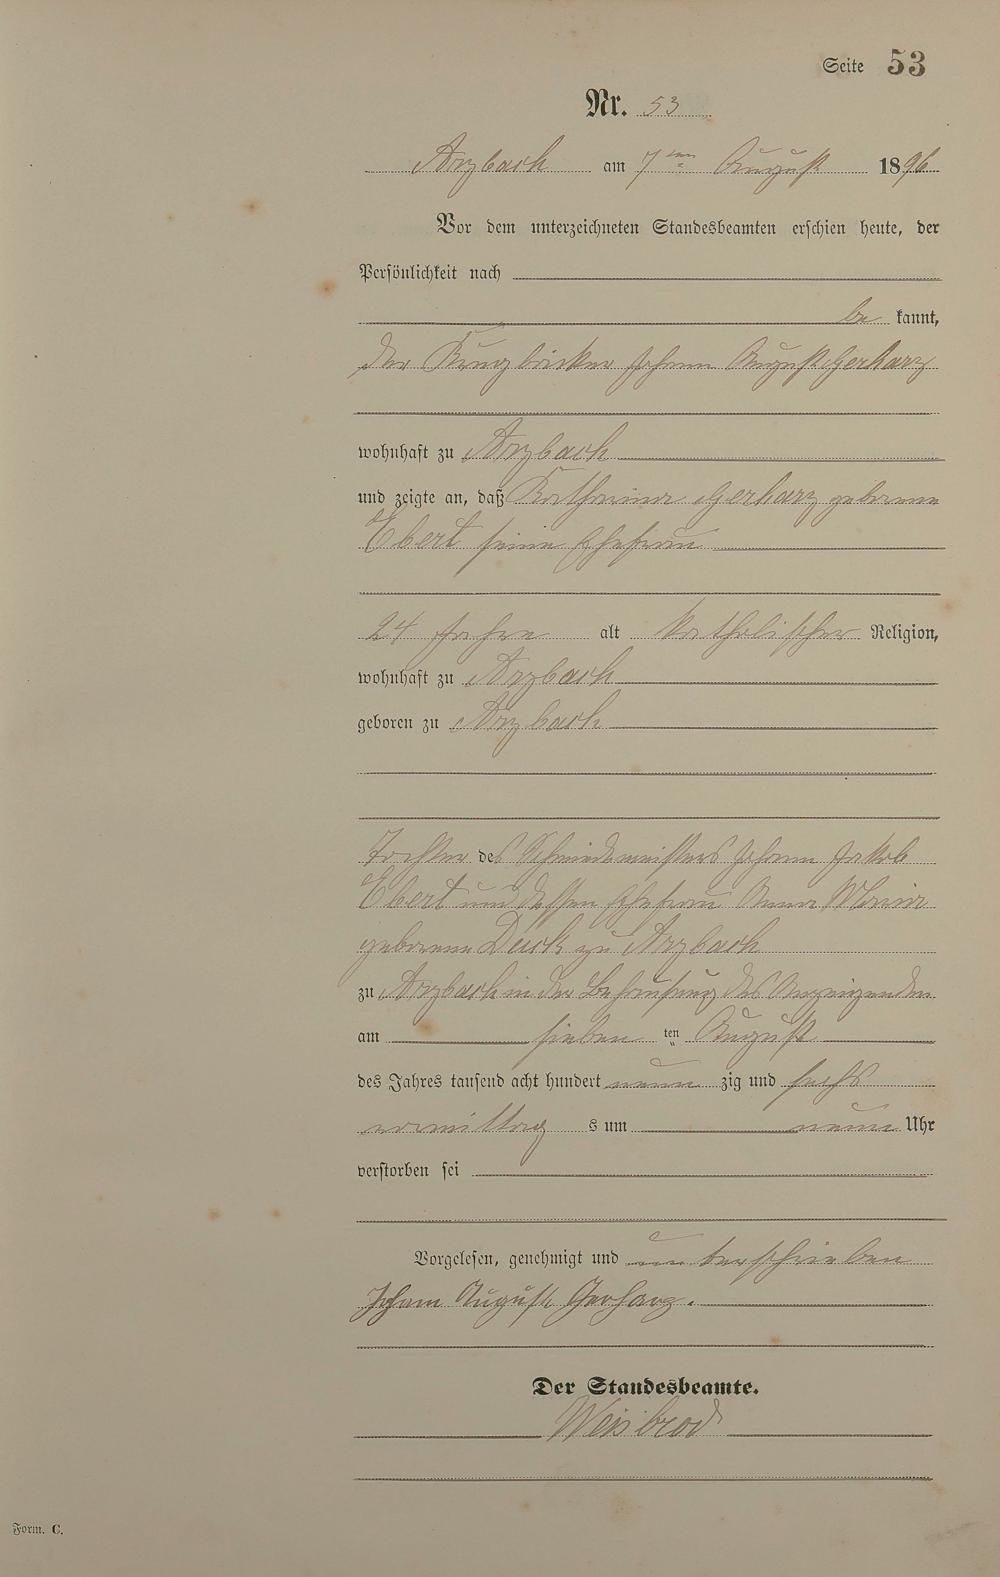 Seite 53
Nr. 53
Arzbach am 7ten August 1896
Vor dem unterzeichneten Standesbeamten erschien heute, der
Persönlichkeit nach
be kannt,
der Krugbäcker Johann August Gerharz
wohnhaft zu Arzbach
und zeigte an, daß Katharina Gerharz geborene
Ebert seine Ehefrau
24 Jahre alt katholischer Religion,
wohnhaft zu Arzbach
geboren zu Arzbach
Tochter des Schmiedemeisters Johann Jakob
Ebert und dessen Ehefrau Anna Maria
geborene Duck zu Arzbach
zu Arzbach in der Behausung des Anzeigenden
am sieben ten August
des Jahres tausend acht hundert neun zig und sechs
vormittag s um neun Uhr
verstorben sei
Vorgelesen, genehmigt und unterschrieben
Johann August Gerharz.
Der Standesbeamte.
Weisbrod
Form. C.